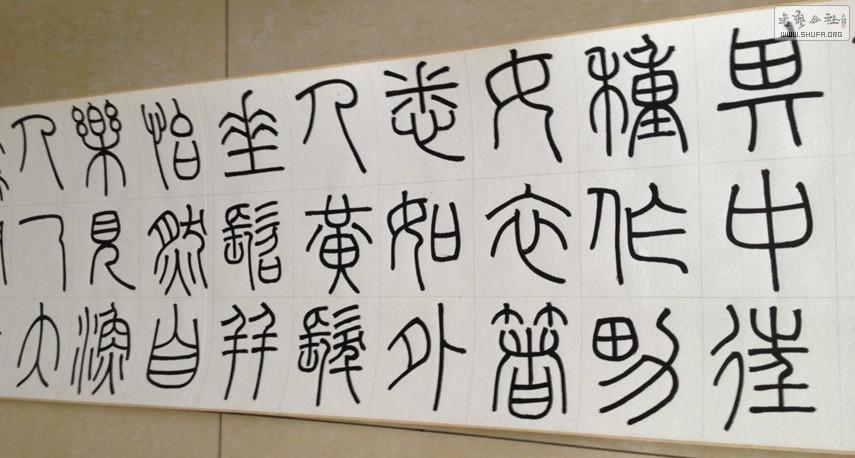 其中往
種作男
女衣箸
悉如外
人黃髮
垂髫并
怡然自
樂見漁
人乃大
書藝公社
WWW.SHUFA.ORG